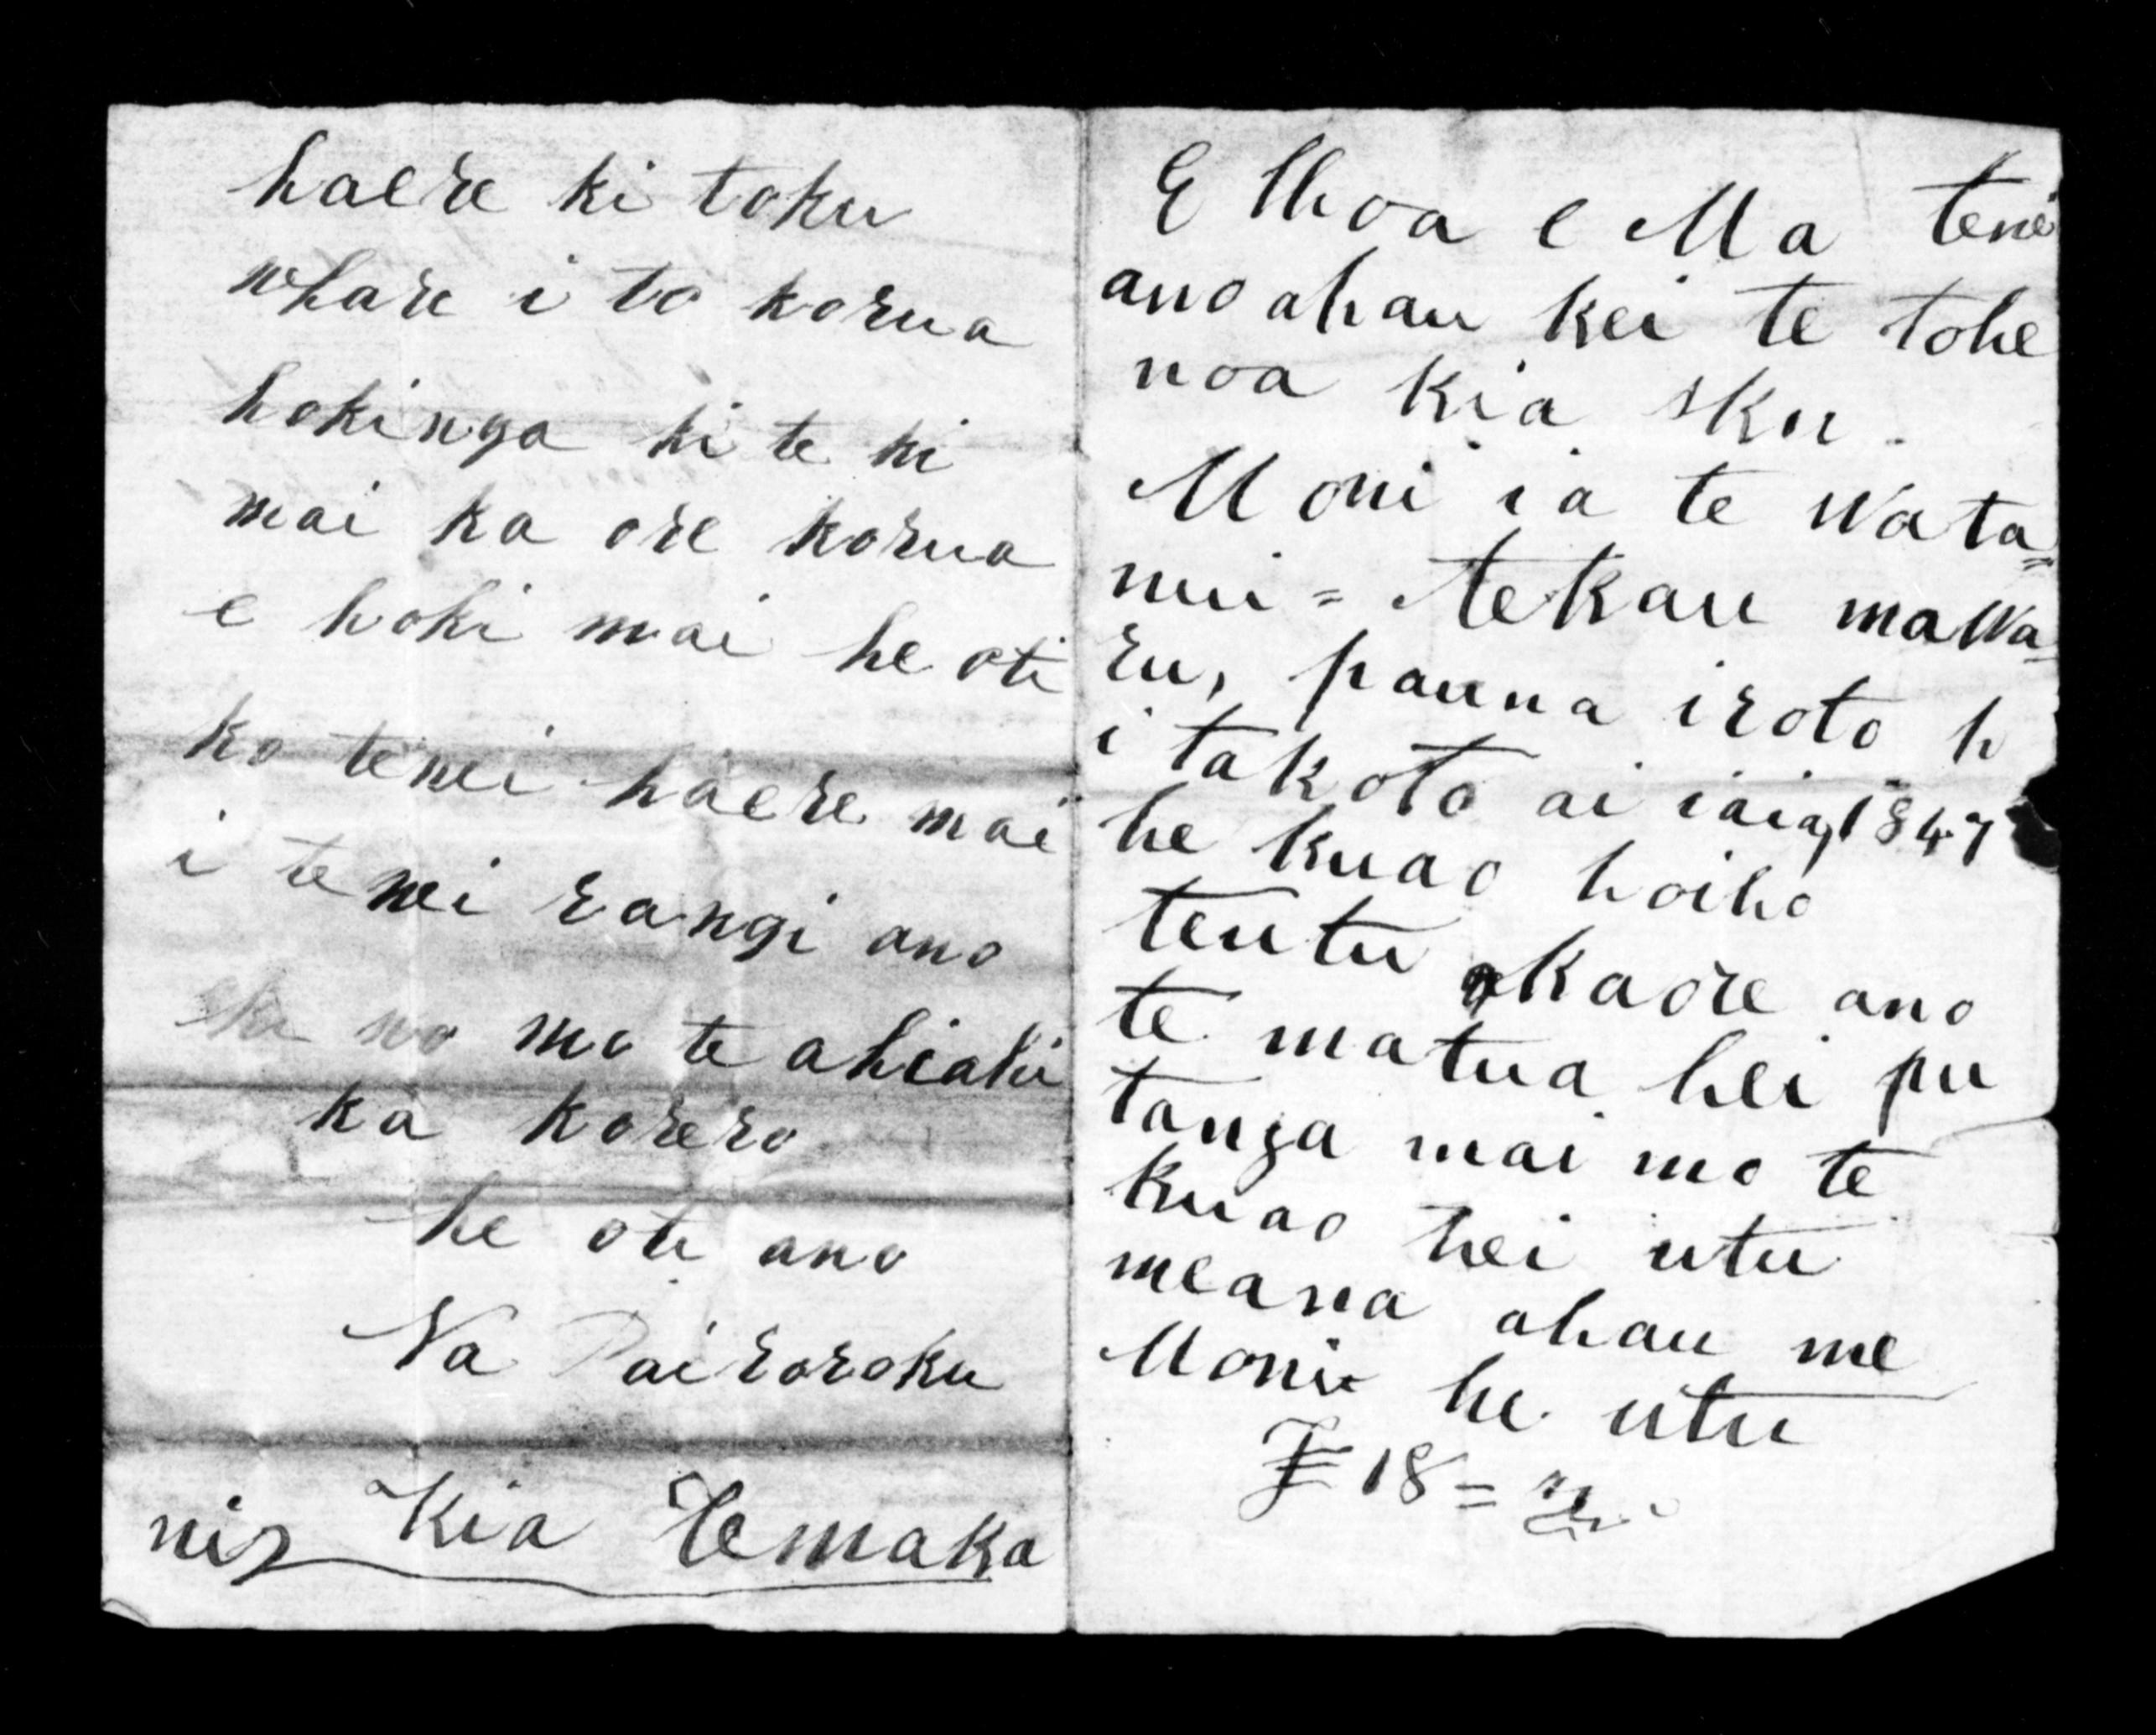 haere ki toku
whare i to korua
hokinga ki te ki
mai ka ore korua
e hoki mai he oti
ko tenei haere mai
i tenei rangi ano
mo te ahiahi
ka korero
he oti ano
Na Pairoroku
Kia Te maka
E Hoa e Ma tenei
ano ahau kei te tohe
noa kia
Moni ia te Wata=
nui = tekau ma Wa=
ru, pauna i roto h
i takoto ai iaia, 1847
he kuao hoiho
teutu kaore ano
te matua hei pu
tanga mai mo te
kuao hei utu
meana ahau me
Moni he utu
£ 18 =